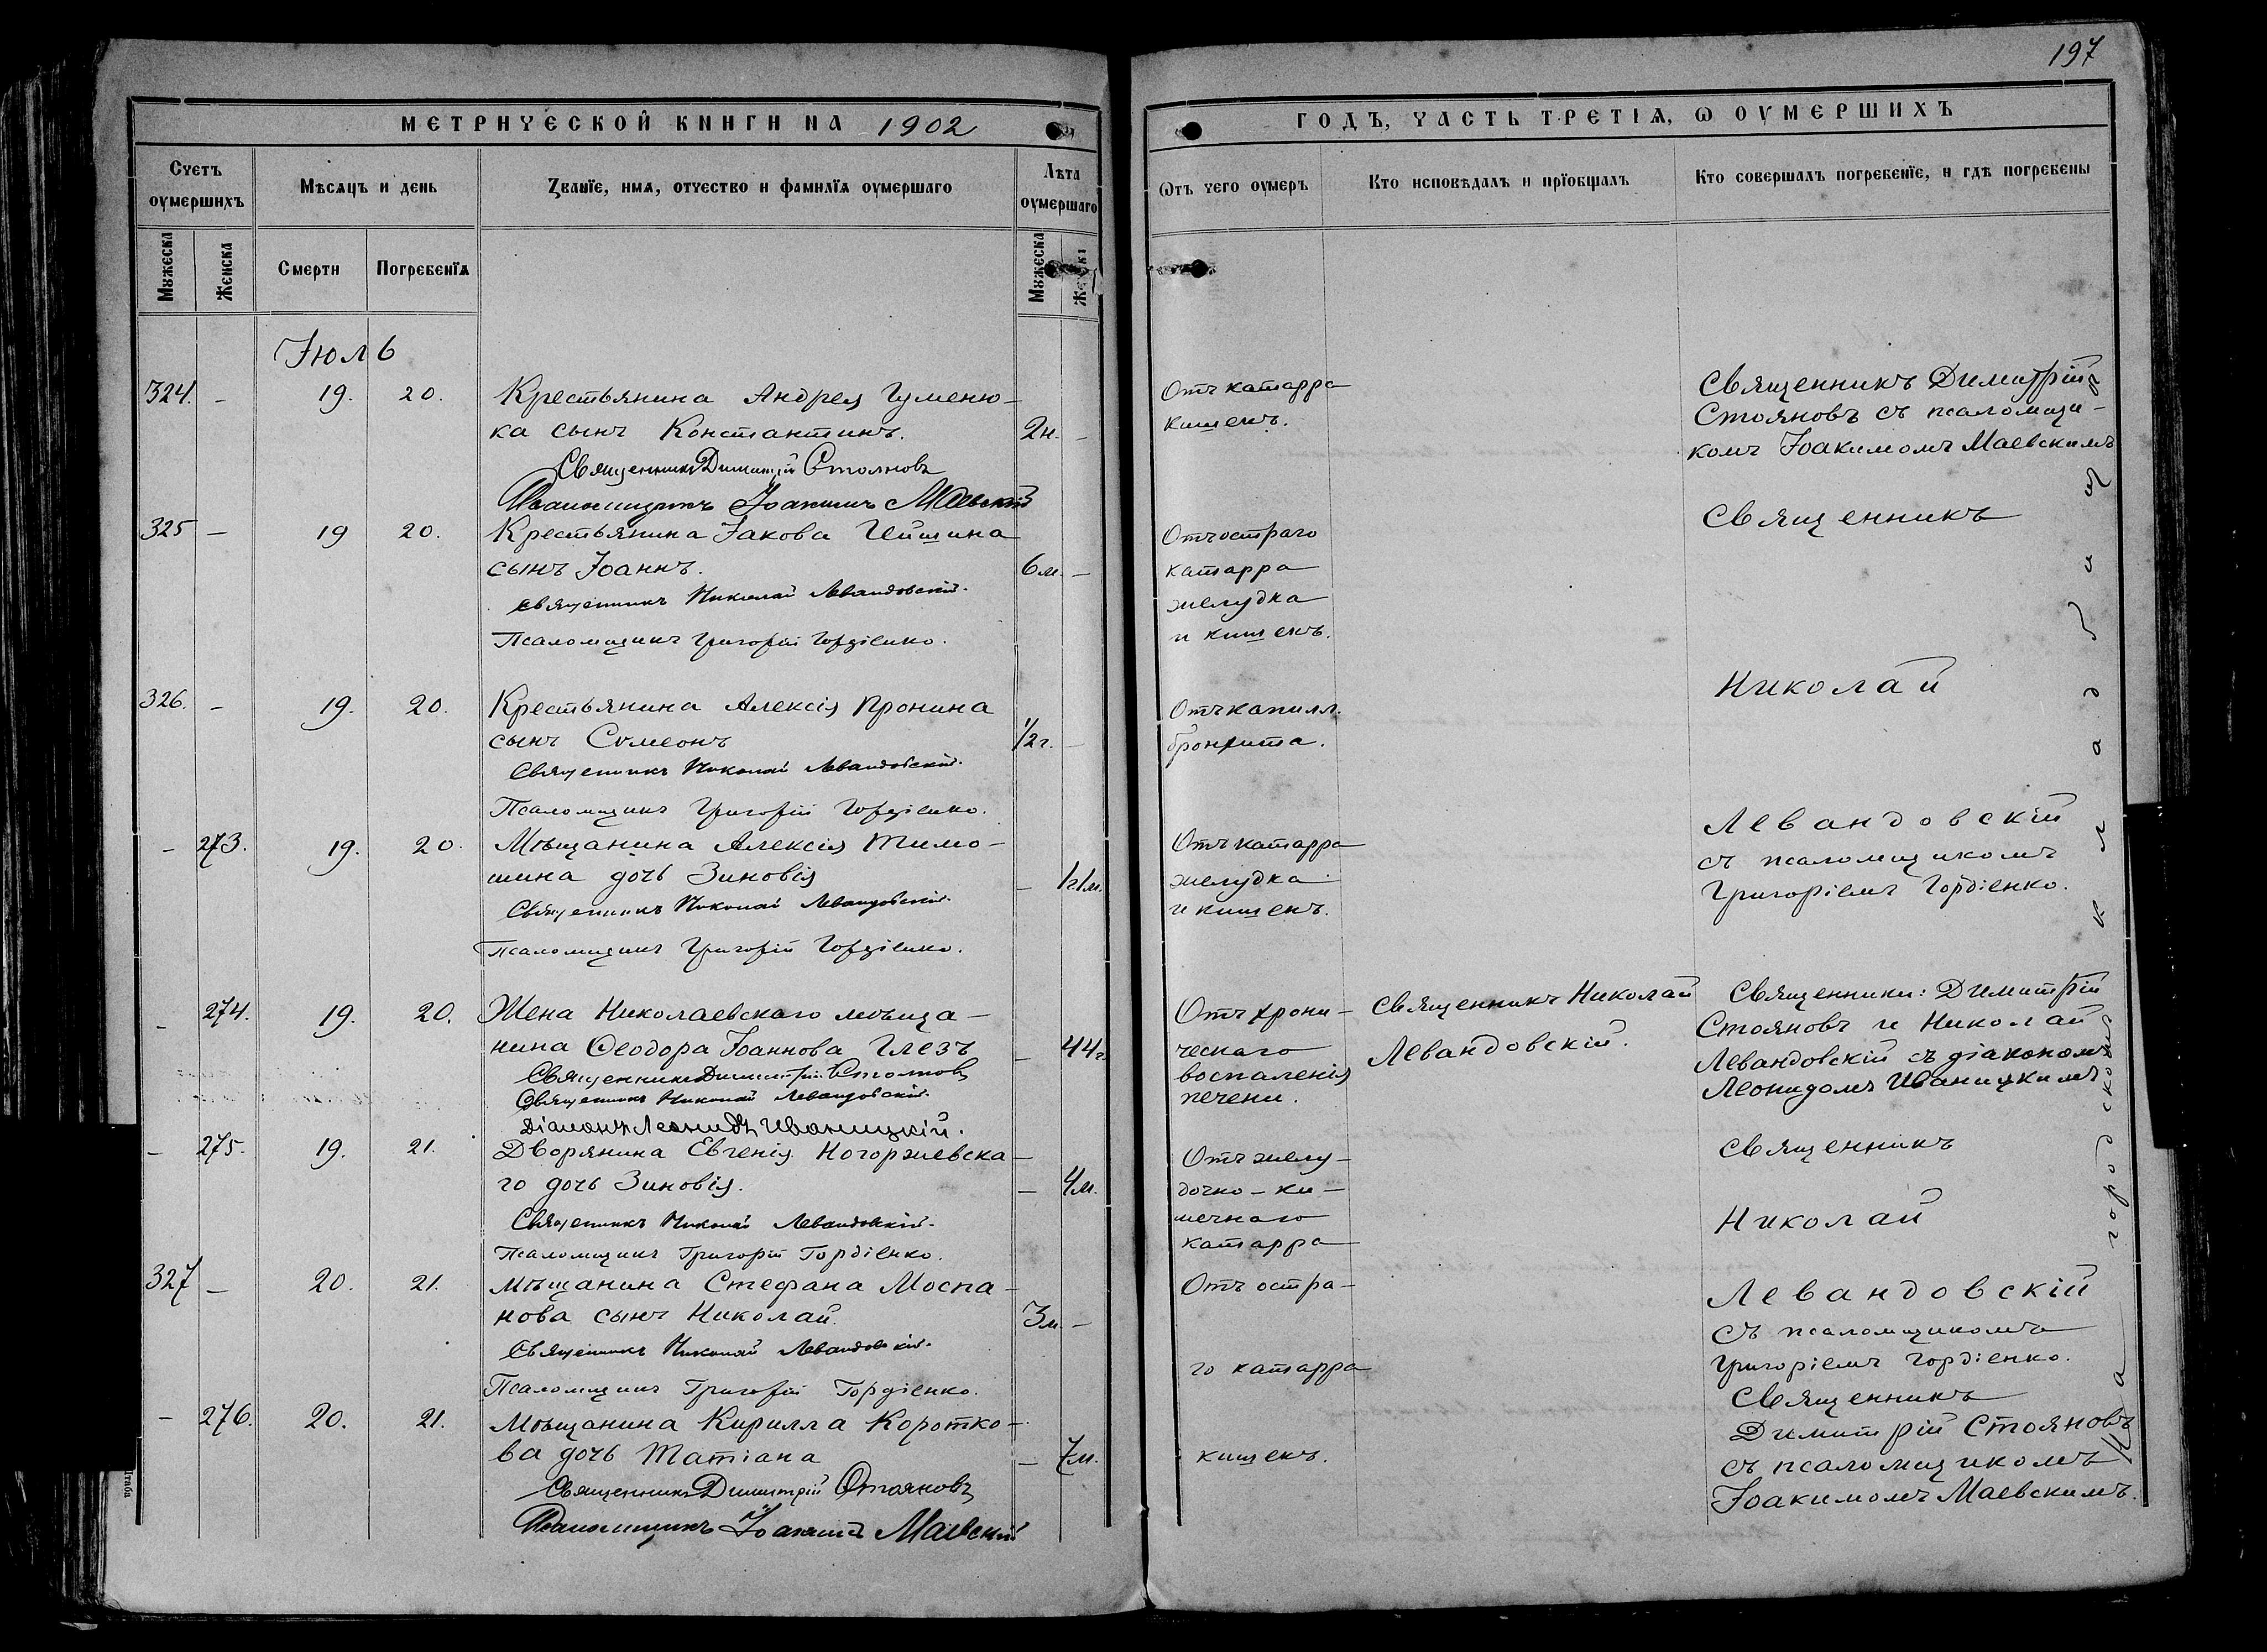 197
МЕТРИЧЕСКОЙ КНИГИ НА 1902
ГОДЪ, ЧАСТЬ ТРЕТІѦ, Ѡ ОУМЕРШИХЪ
Счетъ оумершихъ
Мѣсѧцъ и день
Званїе, имѧ, отчество и фамилїѧ оумершаго
Лѣта оумершаго
Ѿтъ чего оумеръ
Кто исповѣдалъ и прїобщалъ
Кто совершалъ погребенїе, и гдѣ погребены
Мꙋжеска
Женска
Смерти
Погребенїѧ
Мꙋжеска
Іюль
324. - 19. 20. Крестьянина Андрея Гуменю-
ка сынъ Константинъ. 2н. -
Священникъ Димитрій Стояновъ
Псаломщикъ Іоакимъ Маевскій
Отъ катарра
кишекъ.
Священникъ Димитрій
Стояновъ съ псаломщи-
комъ Іоакимомъ Маевскимъ
325 - 19 20. Крестьянина Іакова Чейшина
сынъ Іоаннъ. 6м. -
Священникъ Николай Левандовскій.
Псаломщикъ Григорій Гордіенко.
Отъ остраго
катарра
желудка
и кишекъ.
Священникъ
326. - 19. 20. Крестьянина Алексія Пронина
сынъ Сѵмеонъ 1/2г. -
Священникъ Николай Левандовскій.
Псаломщикъ Григорій Гордіенко.
Отъ капилл.
бронхита.
Николай
- 273. 19. 20. Мѣщанина Алексія Тимо-
шина дочь Зиновія - 1г1м.
Священникъ Николай Левандовскій.
Псаломщикъ Григорій Гордіенко.
Отъ катарра
желудка
и кишекъ.
Левандовскій
съ псаломщикомъ
Григоріемъ Гордіенко.
- 274. 19. 20. Жена Николаевскаго мѣща-
нина Ѳеодора Іоаннова Глезъ - 44г.
Священникъ Димитрій Стояновъ
Священникъ Николай Левандовскій.
Діаконъ Леонидъ Иваницкій.
Отъ хрони-
ческаго
воспаленія
печени.
Священникъ Николай
Левандовскій.
Священники: Димитрій
Стояновъ и Николай
Левандовскій съ діакономъ
Леонидомъ Иваницкимъ
- 275. 19. 21. Дворянина Евгенія Ногоржевска-
го дочь Зиновія. - 4м.
Священникъ Николай Левандовскій.
Псаломщикъ Григорій Гордіенко.
Отъ желу-
дочно-ки-
шечнаго
катарра
Священникъ
Николай
327 - 20. 21. Мѣщанина Стефана Моспа-
нова сынъ Николай. 3м. -
Священникъ Николай Левандовскій.
Псаломщикъ Григорій Гордіенко.
Отъ остра-
го катарра
Левандовскій
съ псаломщикомъ
Григоріемъ Гордіенко.
- 276. 20. 21. Мѣщанина Кирилла Коротко-
ва дочь Татіана - 7м.
Священникъ Димитрій Стояновъ
Псаломщикъ Іоакимъ Маевскій
кишекъ.
Священникъ
Димитрій Стояновъ
съ псаломщикомъ
Іоакимомъ Маевскимъ.
На городскомъ кладбищѣ